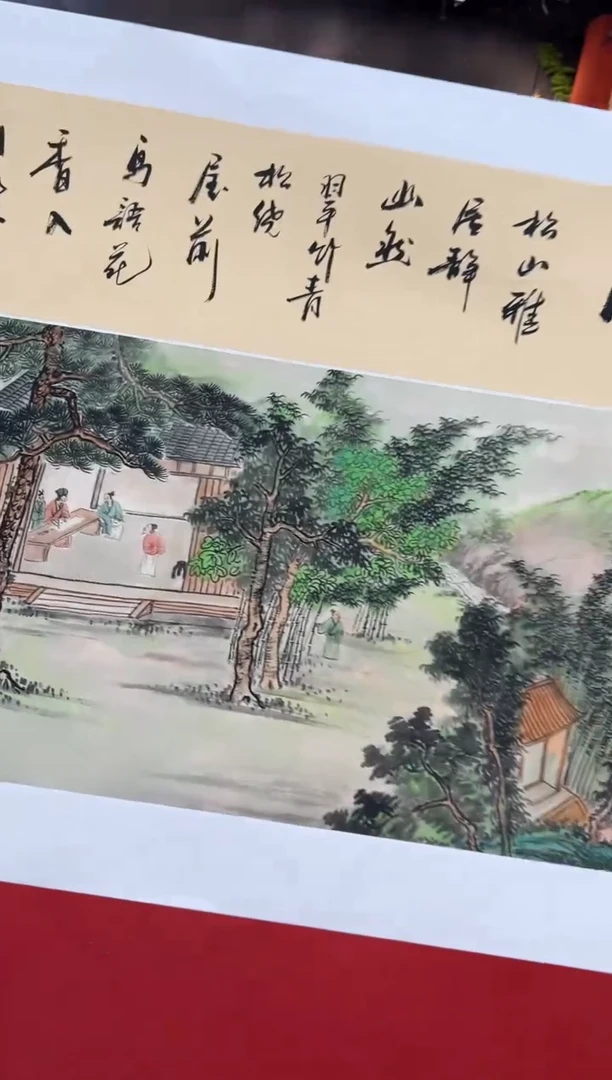 松山雅
居静
幽然
翠竹青
松绕
屋前
鸟语花
香入